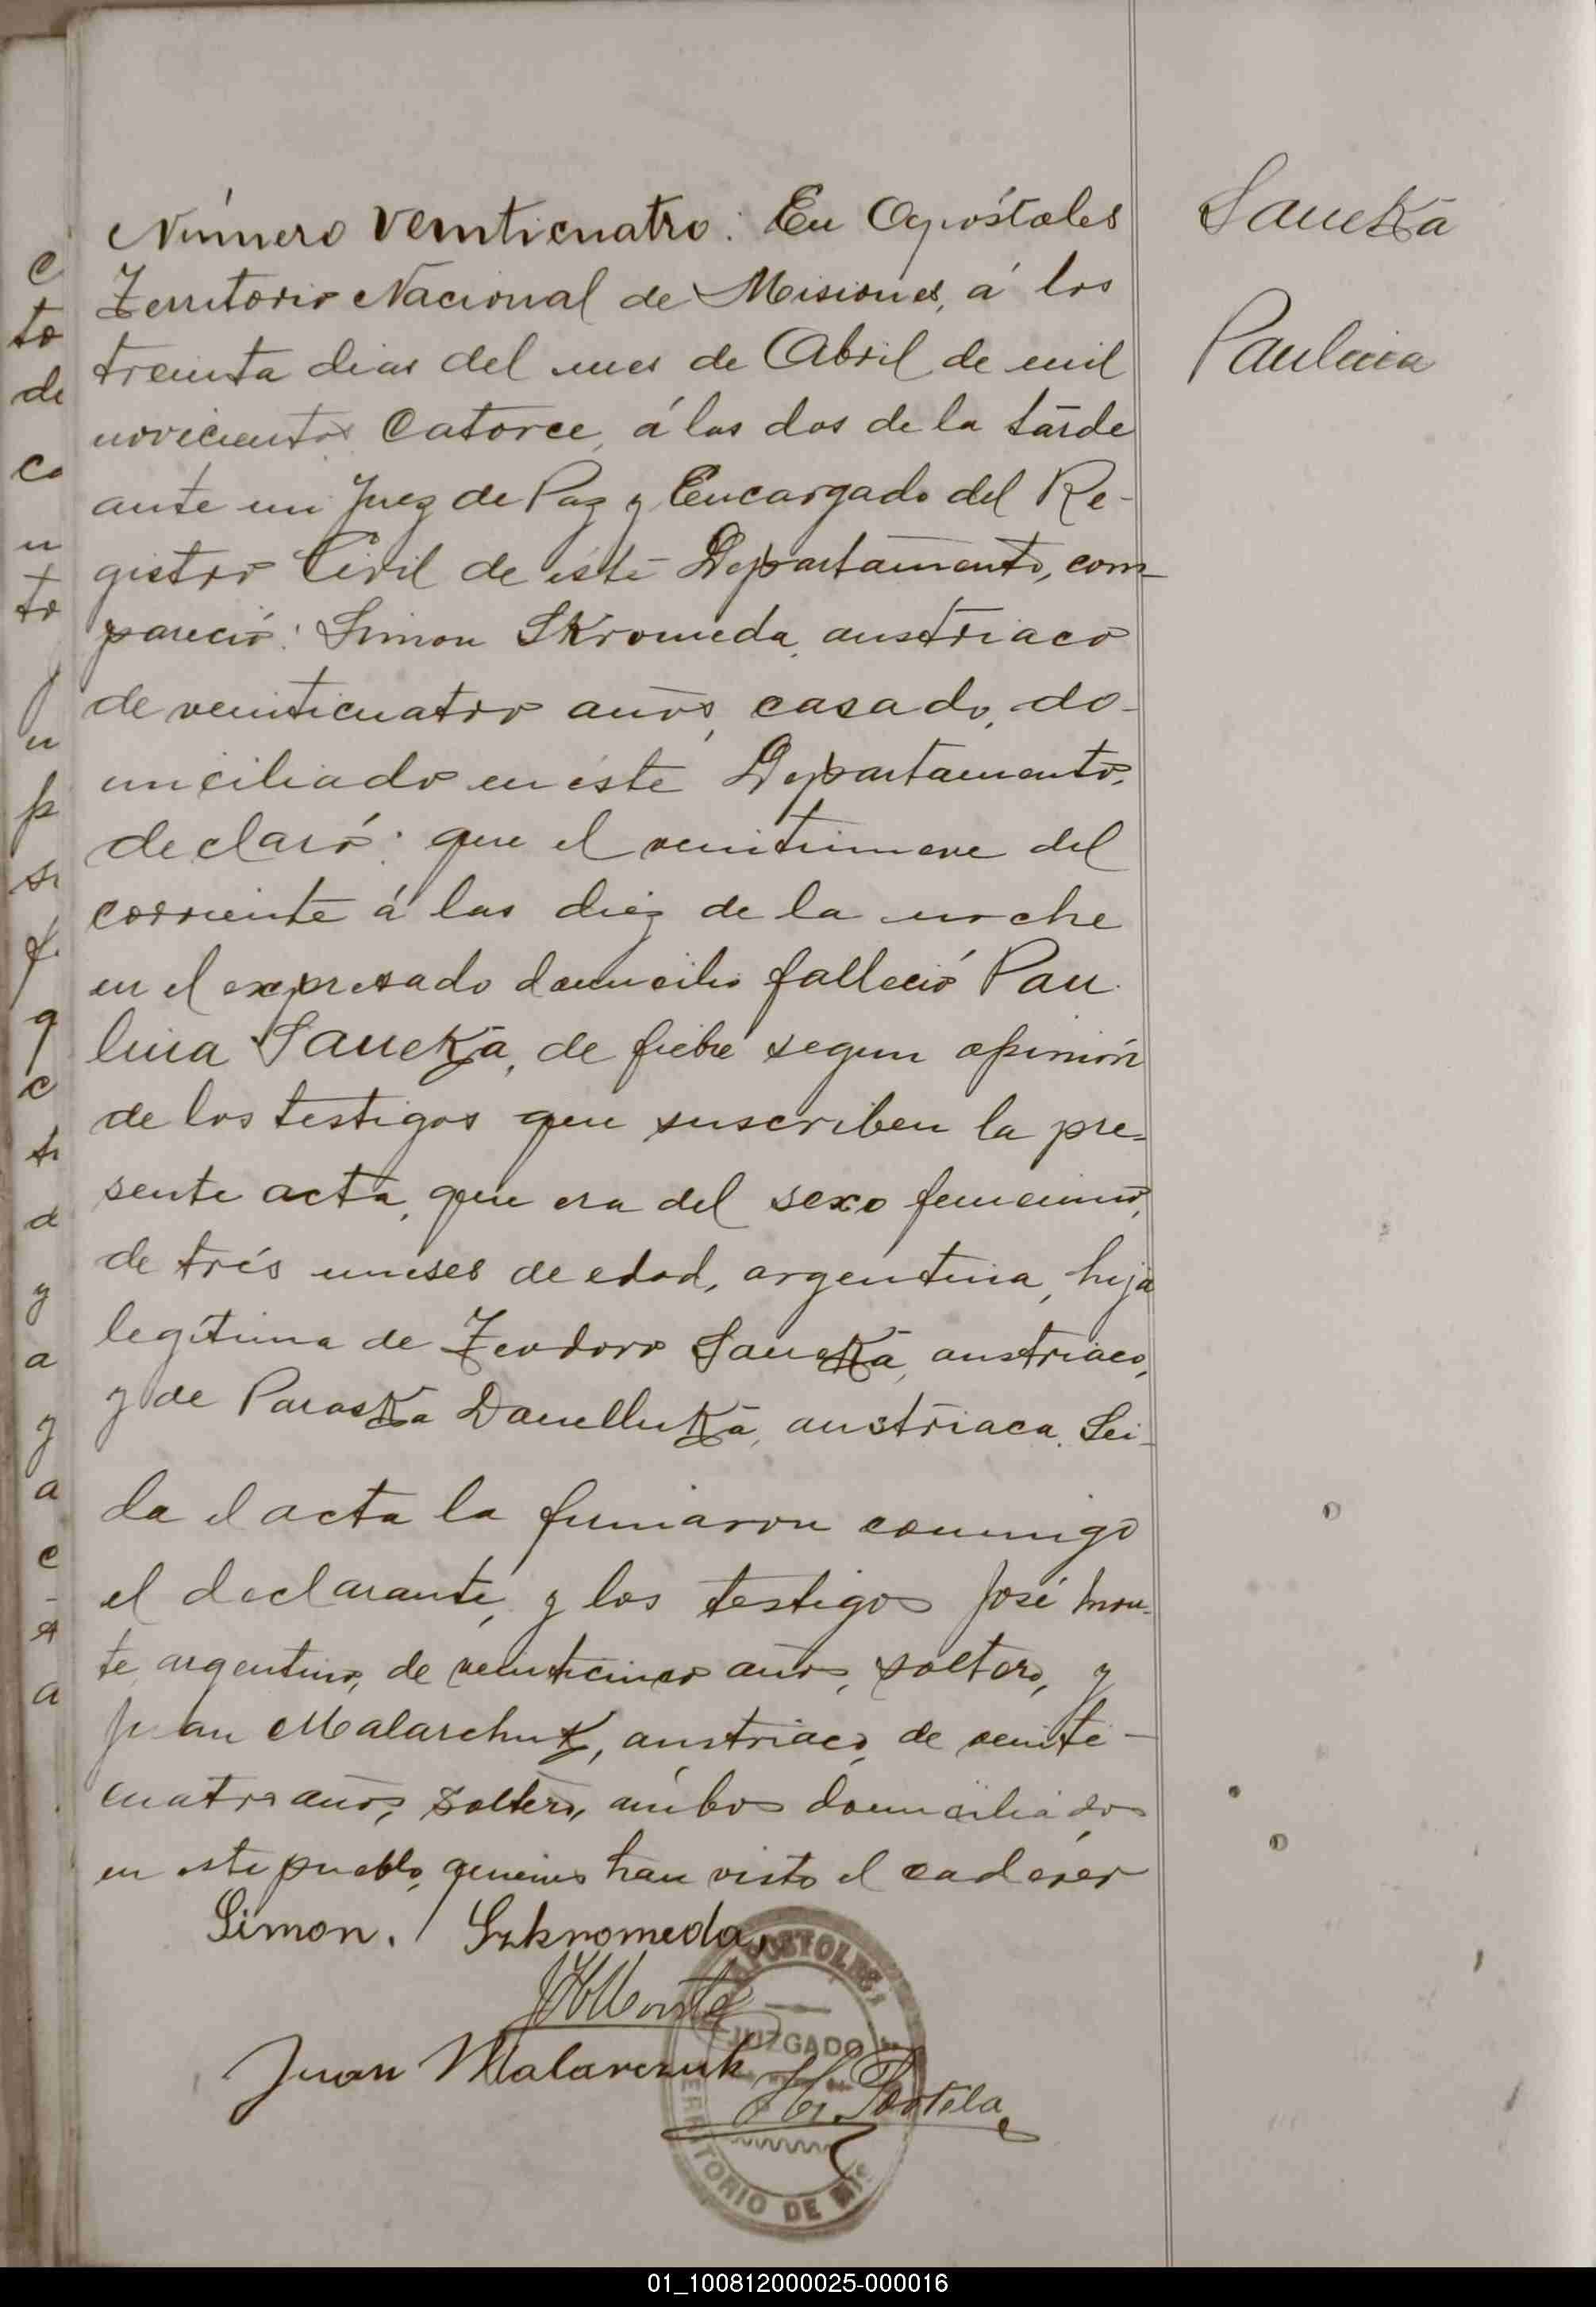 Número Veinticuatro: En Apóstoles
Territorio Nacional de Misiones, á los
treinta dias del mes de Abril de mil
novecientos Catorce, á las dos de la tarde
ante mi Juez de Paz y Encargado del Re-
gistro Civil de éste Departamento, com-
pareció: Simon Skromeda, austriaco
de veinticuatro años, casado, do-
miciliado en éste Departamento,
declaró: que el veintinueve del
corriente á las diez de la noche
en el expresado domicilio falleció Pau-
lina Saucka, de fiebre segun opinión
de los testigos que suscriben la pre-
sente acta, que era del sexo femenino,
de trés meses de edad, argentina, hija
legítima de Teodoro Saucka, austriaco,
y de Paraska Danelluka, austriaca. Lei-
da el acta la firmaron conmigo
el declarante, y los testigos José Mon-
te, argentino, de veinticinco años, soltero, y
Juan Malarchuk, austriaco, de veinti-
cuatro años, soltero, ámbos domiciliados
en este pueblo, quienes han visto el cadáver
Simon. Szkromeda,
JMonte
Juan Malarczuk
Portela
Saucka
Paulina
APOSTOLES
JUZGADO
TERRITORIO DE MIS
01_100812000025-000016